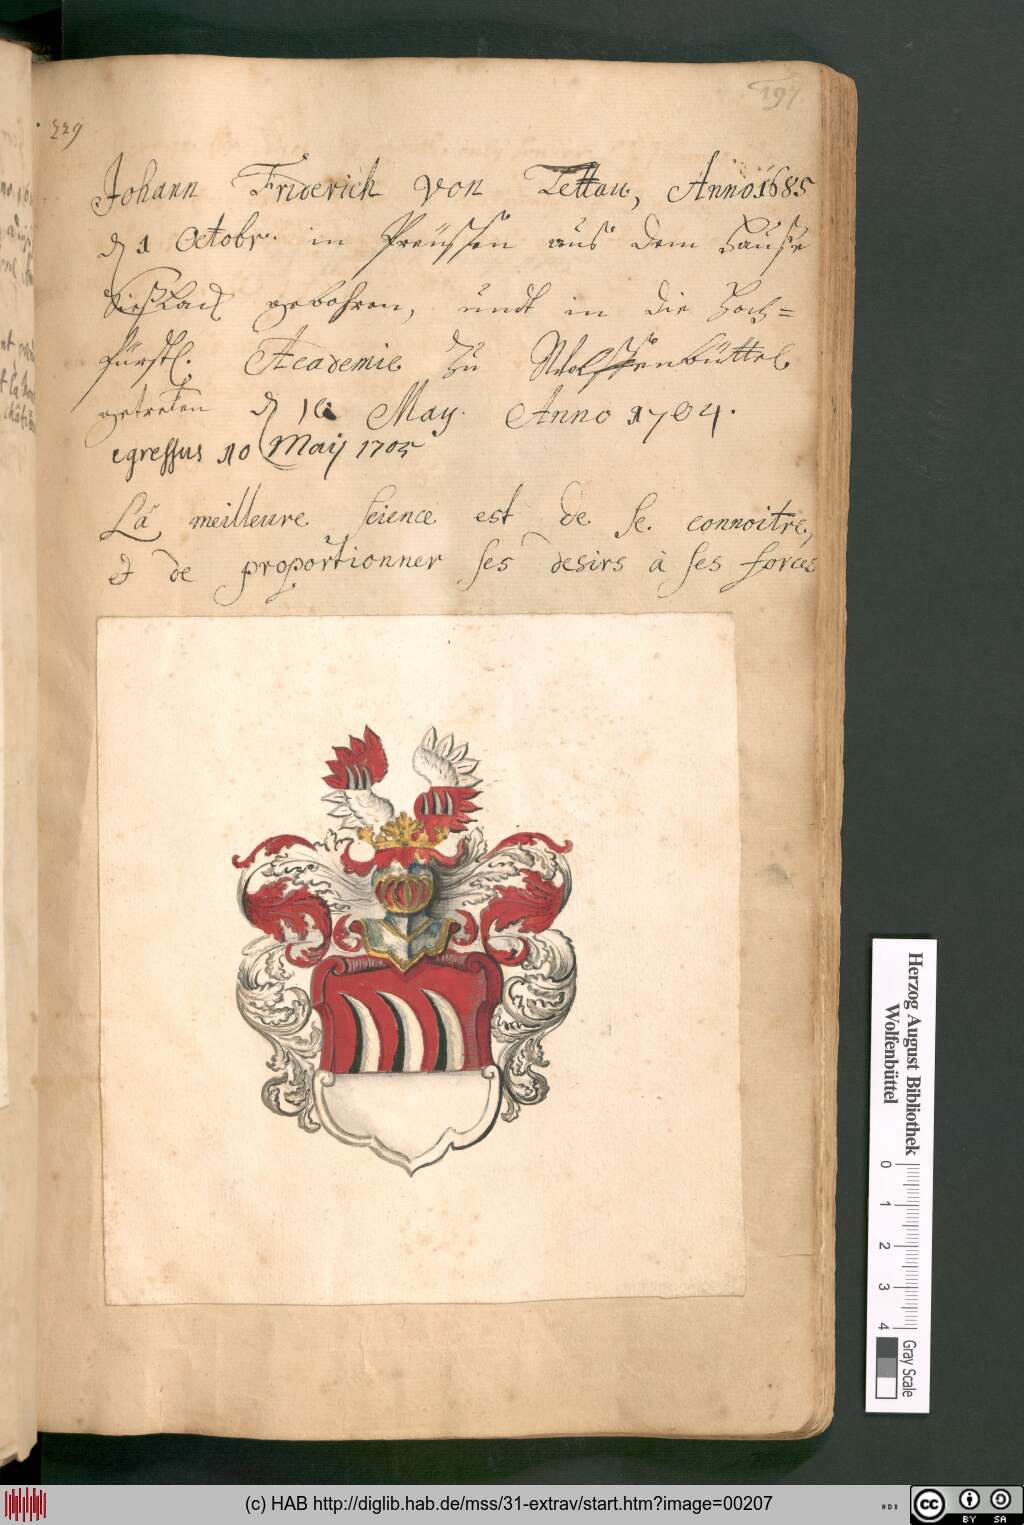 197
229
Johann Friderich von Tettau, Anno 1685
d 1 Octobr. in Preüssen aus dem Hause
gebohren, undt in die Hoch=
fürstl. Academie zu Wolffenbüttel
getreten d May. Anno 1704.
egressus 10 Maij 1705
La meilleure science est de se connoitre,
et de proportionner ses desirs à ses forces
Herzog August Bibliothek
Wolfenbüttel
0 1 2 3 4
Gray Scale
(c) HAB http://diglib.hab.de/mss/31-extrav/start.htm?image=00207
cc BY SA